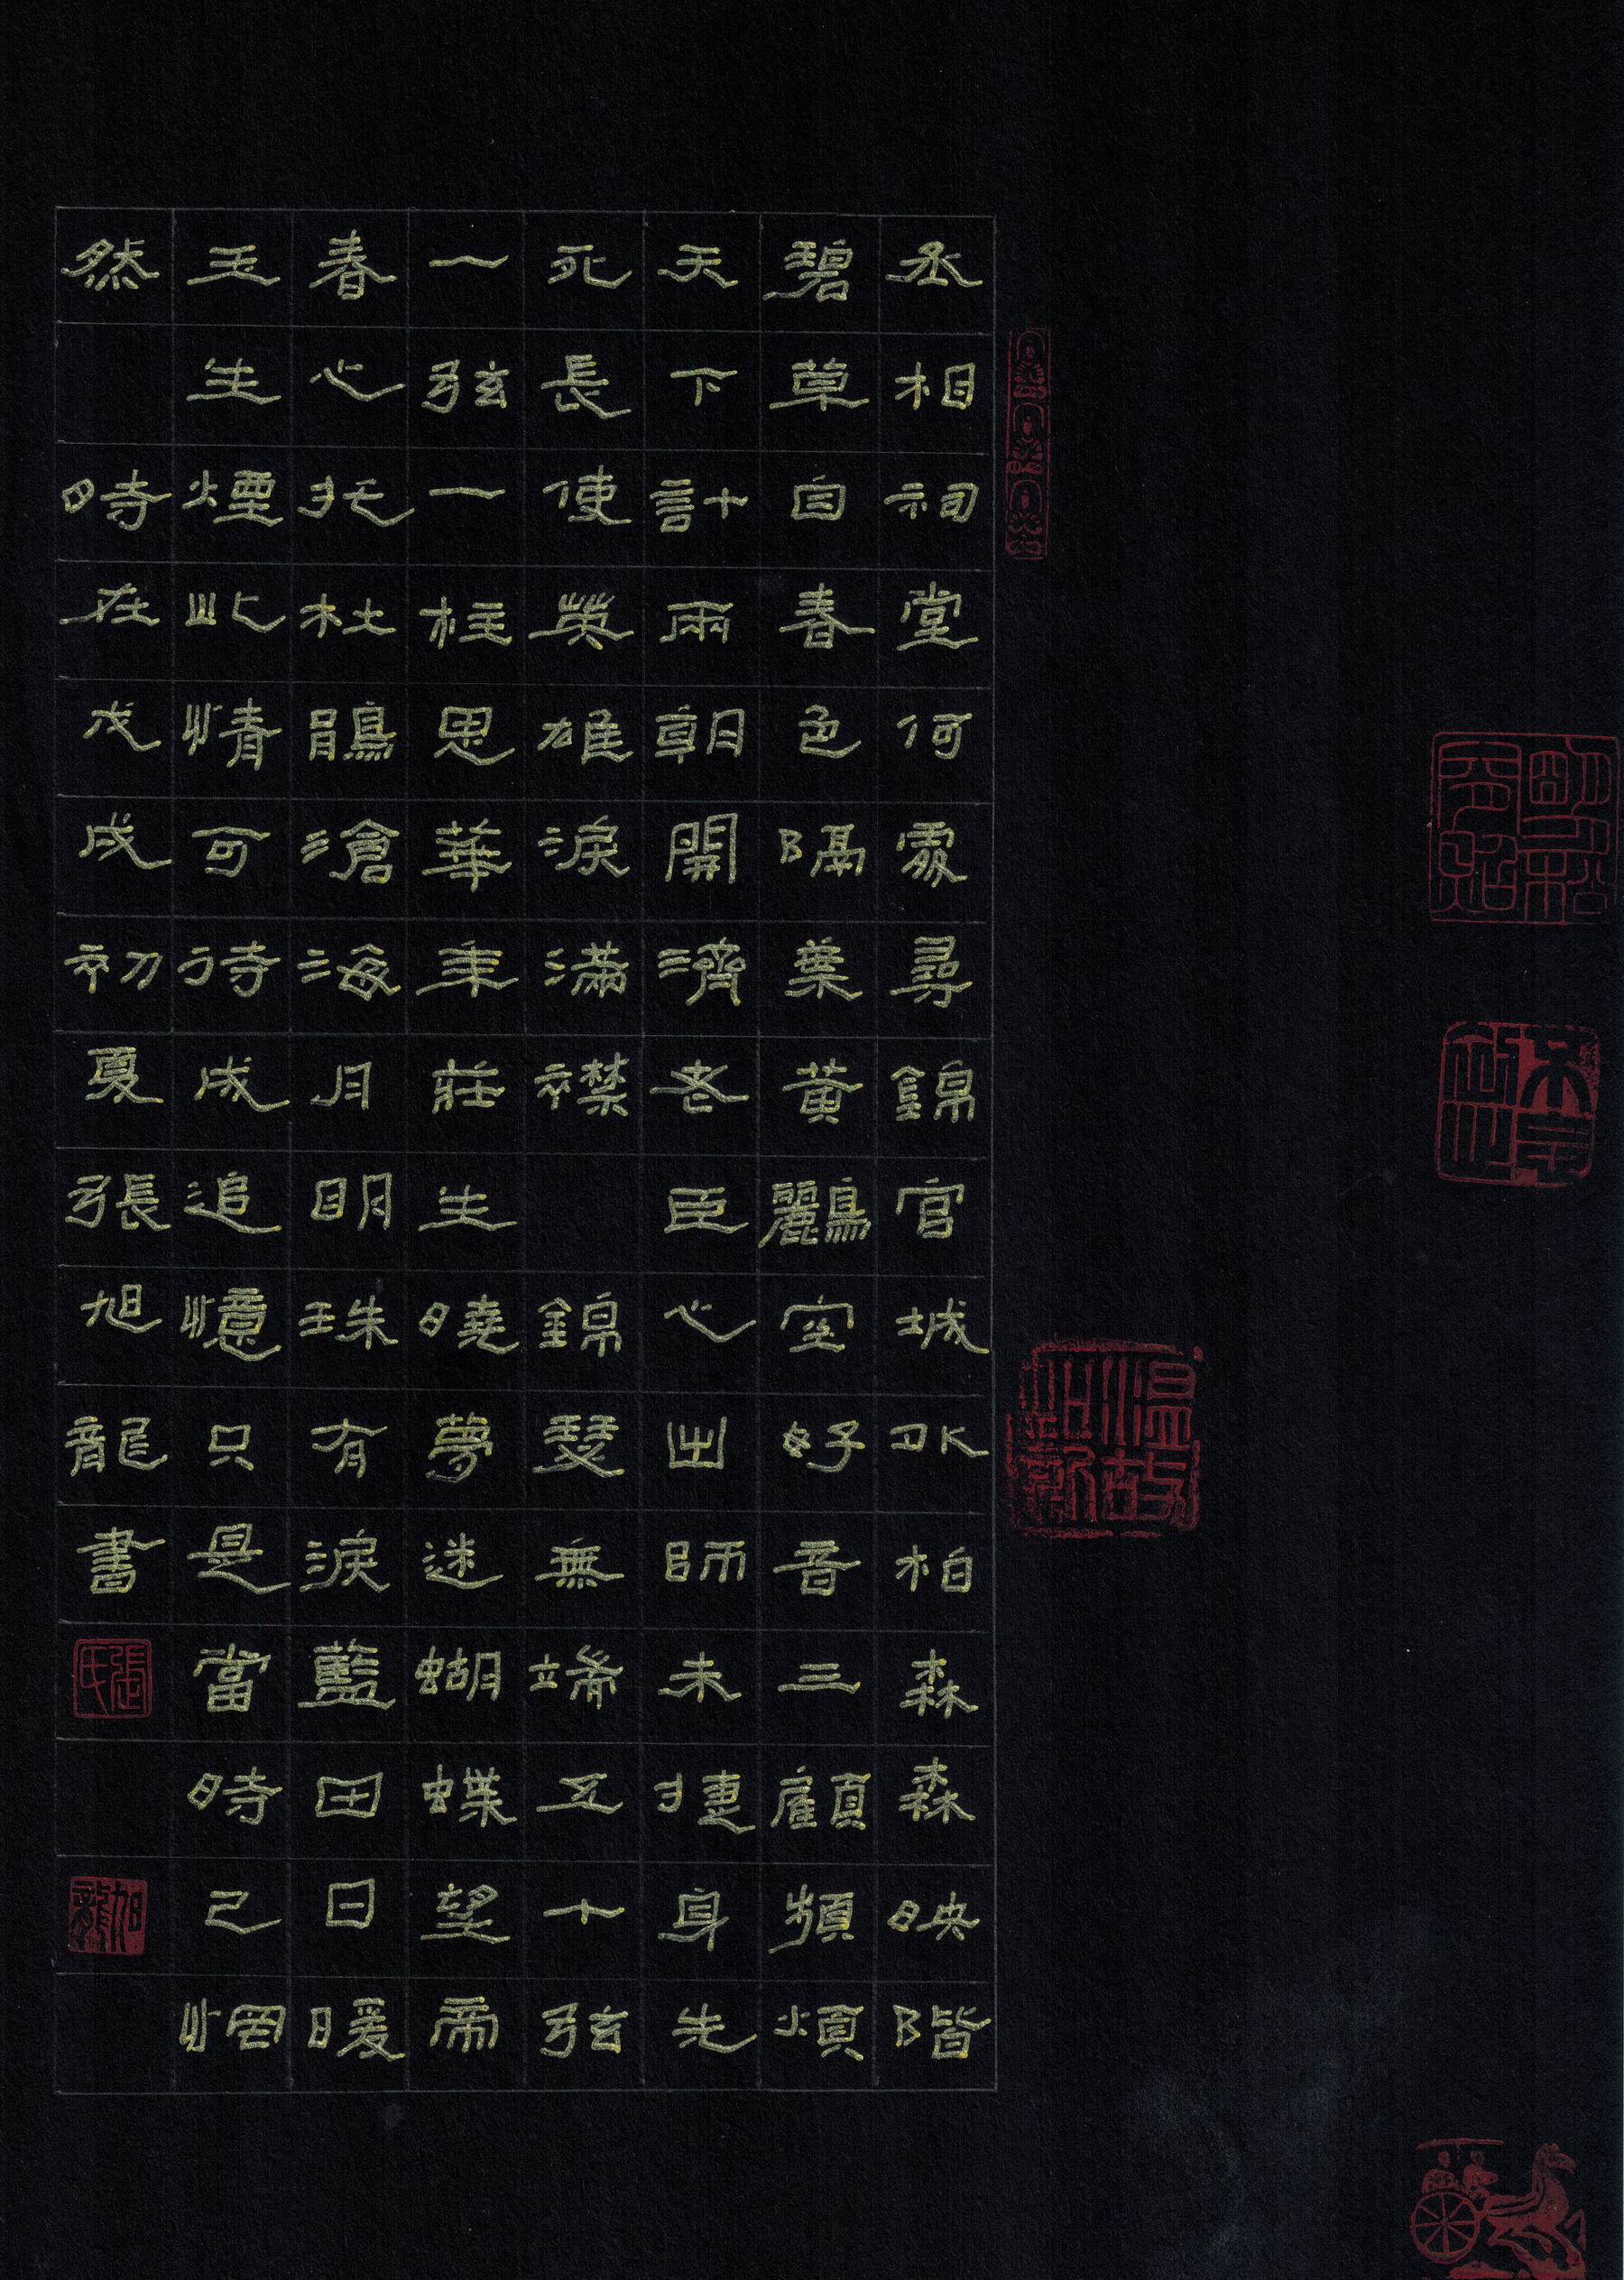 丞相祠堂何處尋錦官城外柏森森映階
碧草自春色隔葉黃鸝空好音三顧頻煩
天下計兩朝開濟老臣心出師未捷身先
死長使英雄淚滿襟 錦瑟無端五十弦
一弦一柱思華年莊生曉夢迷蝴蝶望帝
春心托杜鵑滄海月明珠有淚藍田日暖
玉生煙此情可待成追憶只是當時已惘
然 時在戊戌初夏張旭龍書
張氏
旭龍
溫故知新